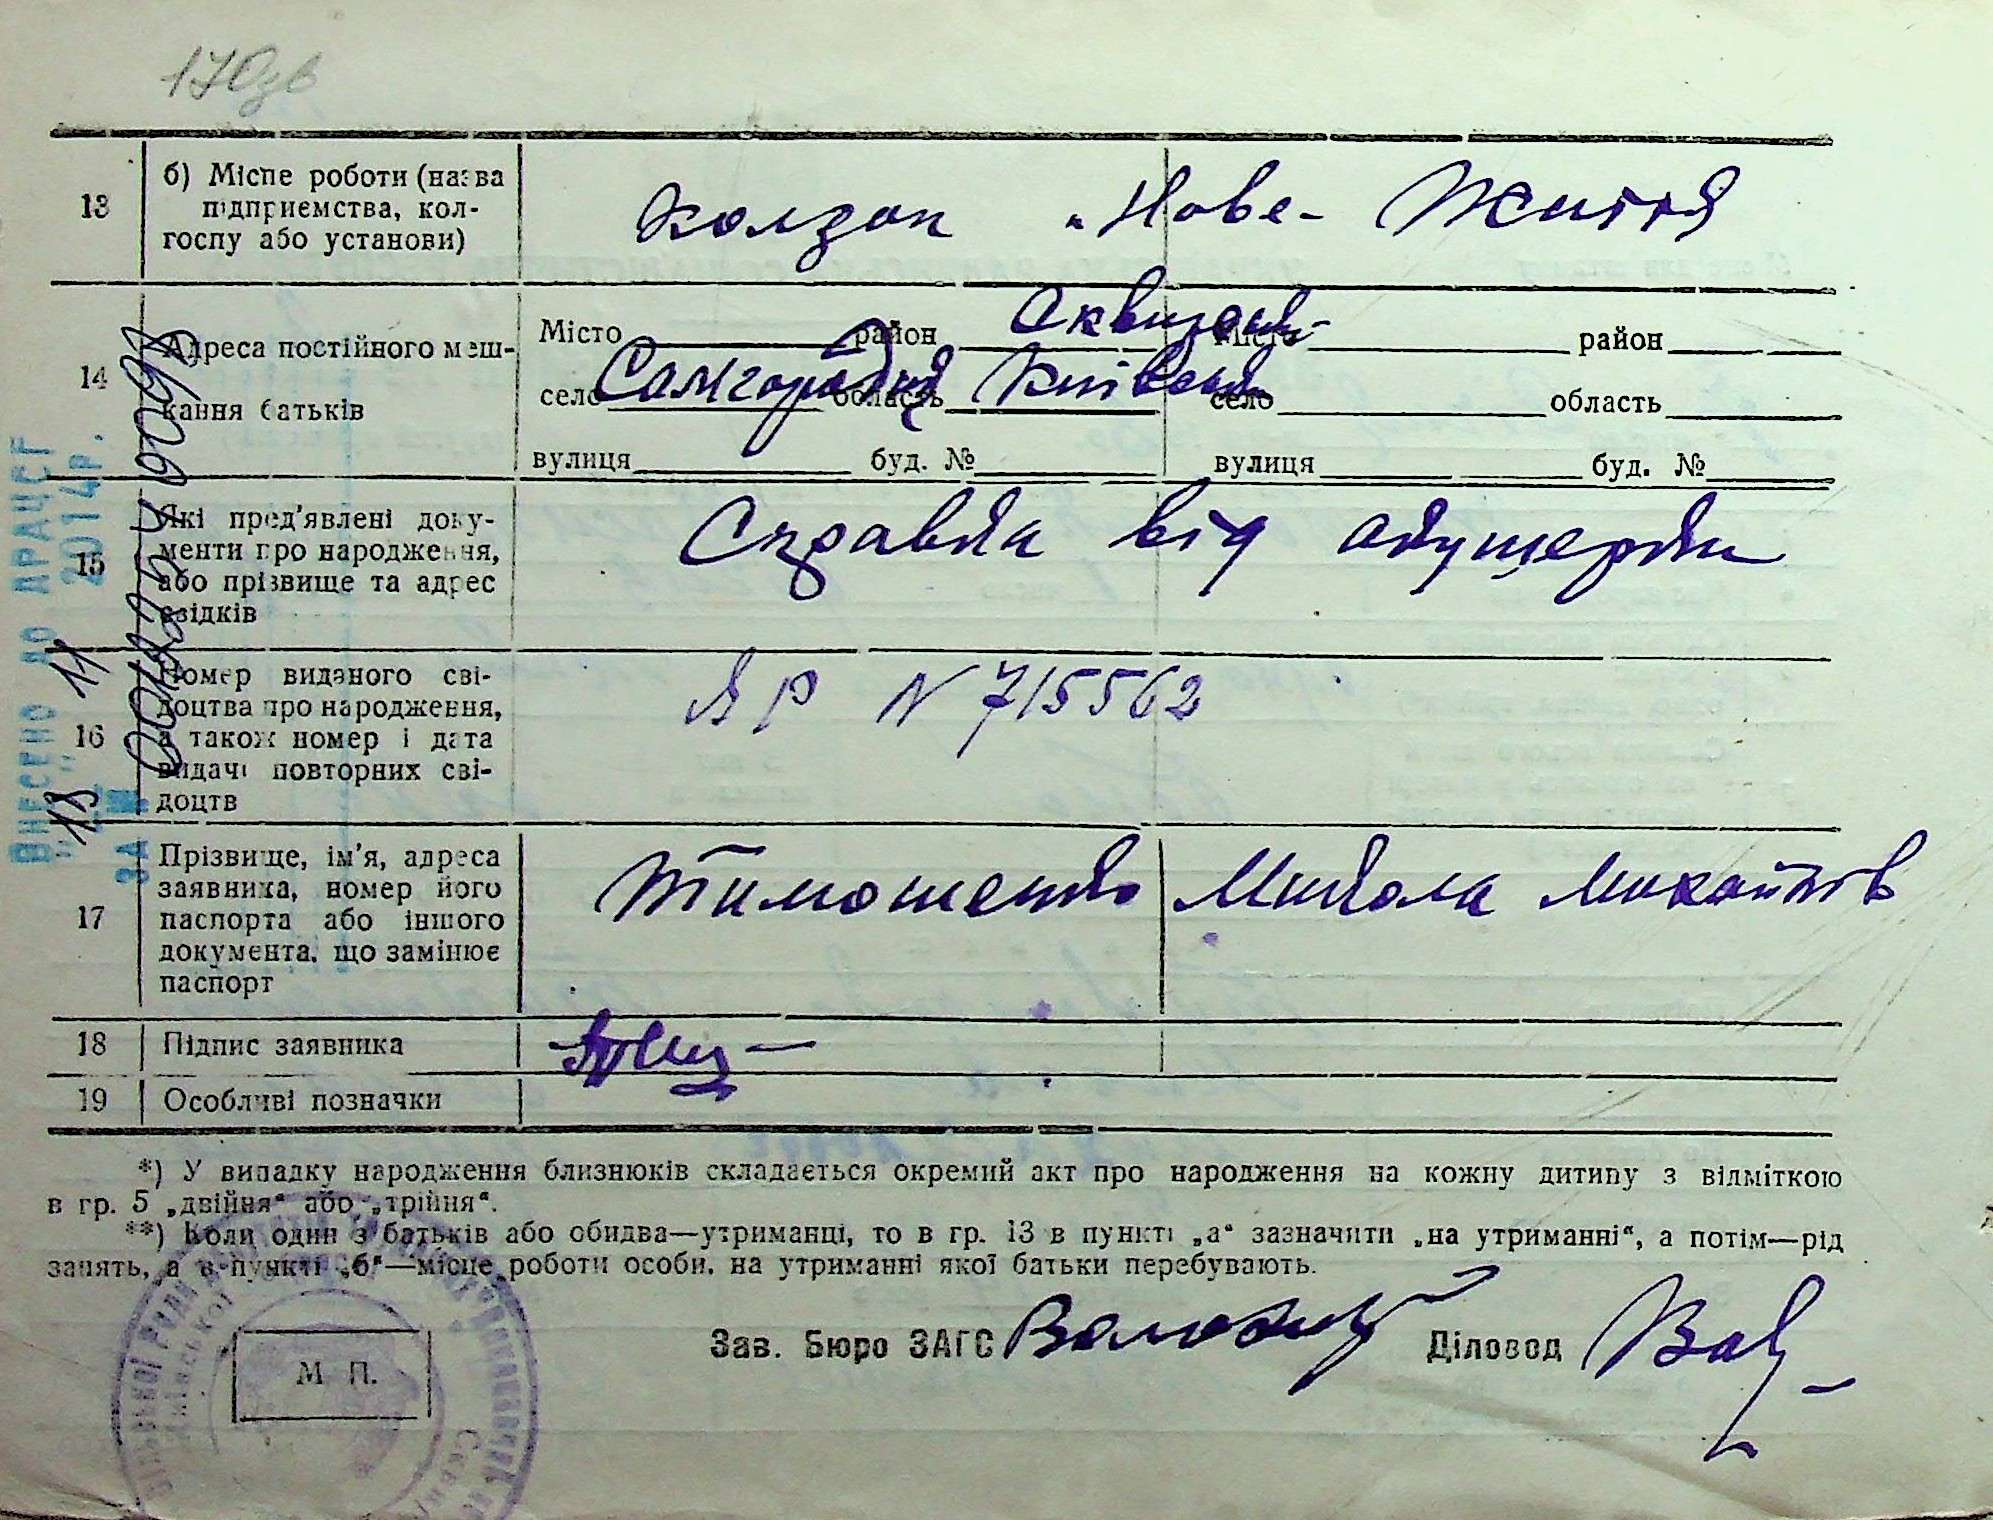 170зв
13
б) Місце роботи (назва
підприємства, кол-
госпу або установи)
Колгосп „Нове- Життя
14
Адреса постійного меш-
кання батьків
Місто район Сквирськ- Місто район
село Самгородок область Київська село область
вулиця буд. № вулиця буд. №
15
Які пред'явлені доку-
менти про народження,
або прізвище та адрес
свідків
Справка від акушерки
16
Номер виданого сві-
доцтва про народження,
а також номер і дата
видачі повторних сві-
доцтв
ЯР N 715562
17
Прізвище, ім'я, адреса
заявника, номер його
паспорта або іншого
документа, що замінює
паспорт
Тимошенко Микола Михайлов
18
Підпис заявника
19
Особливі позначки
*) У випадку народження близнюків складається окремий акт про народження на кожну дитину з відміткою
в гр. 5 „двійня“ або „трійня“.
**) Коли один з батьків або обидва—утриманці, то в гр. 13 в пункті „а“ зазначити „на утриманні“, а потім—рід
занять, а в пункті „б“—місце роботи особи, на утриманні якої батьки перебувають.
М П.
Зав. Бюро ЗАГС
Діловод
ВНЕСЕНО ДО ДРАЦСГ
"18" 11 2014р.
ЗА №